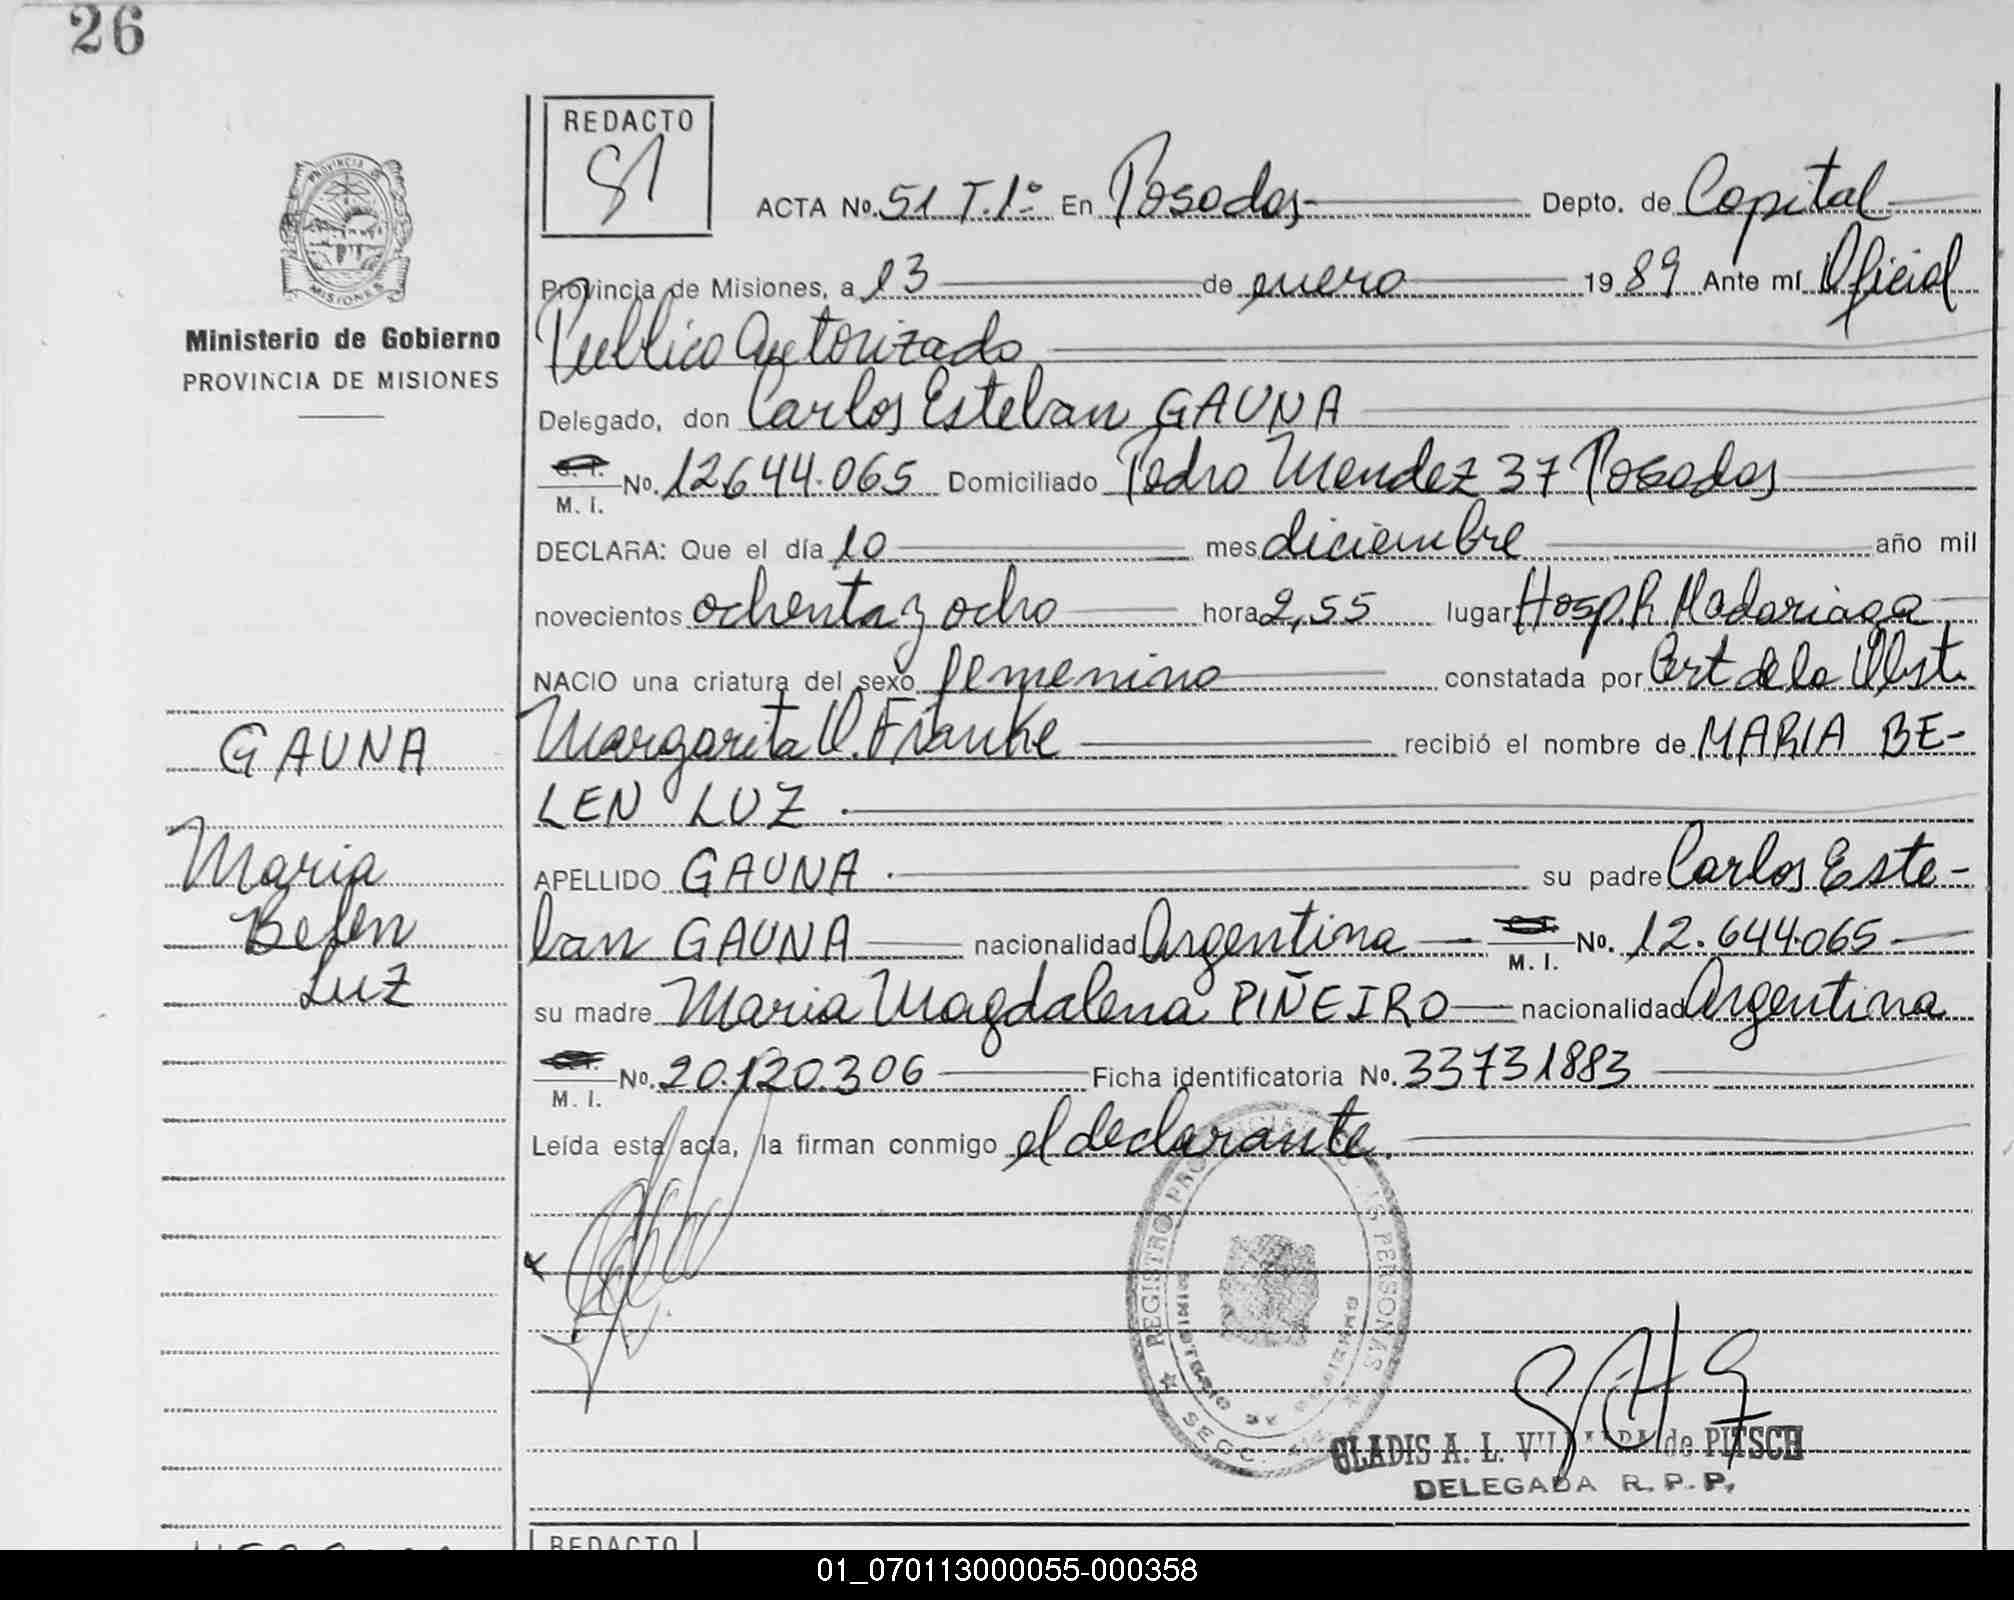 26
REDACTO
ACTA No. 51 T.1º En Posadas Depto. de Capital
PROVINCIA
MISIONES
Provincia de Misiones, a 13 de enero 1989 Ante mí Oficial
Ministerio de Gobierno
PROVINCIA DE MISIONES
Publico Autorizado
Delegado, don Carlos Esteban GAUNA
M. I. No. 12644.065 Domiciliado Pedro Mendez 37 Posadas
DECLARA: Que el día 10 mes diciembre año mil
novecientos ochenta y ocho hora 2,55 lugar Hosp. R. Madariaga
NACIO una criatura del sexo femenino constatada por Cert de la Obst.
GAUNA
Margarita O. Franke recibió el nombre de MARIA BE-
LEN LUZ.
Maria
Belen
Luz
APELLIDO GAUNA. su padre Carlos Este-
ban GAUNA nacionalidad Argentina M. I. No. 12.644.065
su madre Maria Magdalena PIÑEIRO nacionalidad Argentina
M. I. No. 20.120.306 Ficha identificatoria No. 33731883
Leída esta acta, la firman conmigo el declarante.
REGISTRO PROVINCIAL DE LAS PERSONAS
MINISTERIO DE GOBIERNO
SECC.
GLADIS A. L. de PITSCH
DELEGADA R. P. P.
REDACTO
01_070113000055-000358